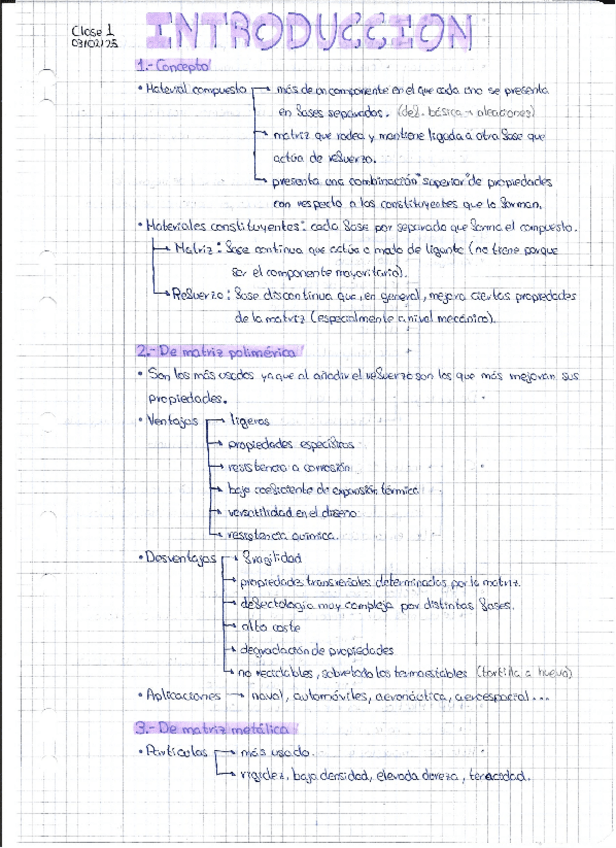 Clase 1
03/02/25
INTRODUCCION
1.- Concepto
• Material compuesto → más de un componente en el que cada uno se presenta
en fases separadas. (def. básica → aleaciones)
→ matriz que rodea y mantiene ligada a otra fase que
actúa de refuerzo.
→ presenta una combinación "superior" de propiedades
con respecto a los constituyentes que lo forman.
• Materiales constituyentes: cada fase por separado que forma el compuesto.
→ Matriz: fase continua que actúa a modo de ligante (no tiene porque
ser el componente mayoritario).
→ Refuerzo: fase discontinua que, en general, mejora ciertas propiedades
de la matriz (especialmente a nivel mecánico).
2.- De matriz polimérica
• Son los más usados ya que al añadir el refuerzo son los que más mejoran sus
propiedades.
• Ventajas → ligeros
→ propiedades específicas
→ resistencia a corrosión
→ bajo coeficiente de expansión térmica
→ versatilidad en el diseño
→ resistencia química.
• Desventajas → fragilidad
→ propiedades transversales determinadas por la matriz.
→ defectología muy compleja por distintas fases.
→ alto coste
→ degradación de propiedades
→ no reciclables, sobretodo los termoestables (tortilla a huevo)
• Aplicaciones → naval, automóviles, aeronáutica, aeroespacial...
3.- De matriz metálica
• Partículas → más usado.
→ rigidez, baja densidad, elevada dureza, tenacidad.